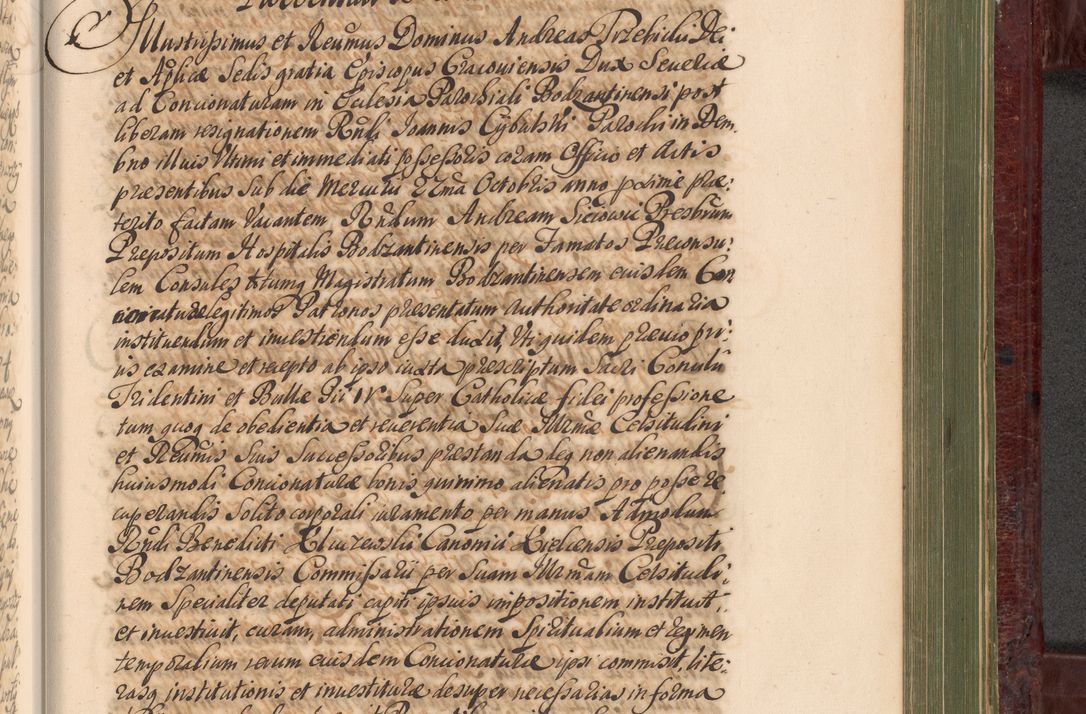 Illustrissimus et Reumus Dominus Andreas Trzebicki Dei
et Aplicæ Sedis gratia Episcopus Cracouiensis Dux Seueriæ
ad Concionaturam in Ecclesia Parochiali Bodzantinensi post
liberam resignationem Rndi Ioannis Cybulski Parochi in Dem-
bno illius Ultimi et immediati possessoris coram Officio et Actis
præsentibus sub die Mercurii Octobris anno proxime præ:
terito factam Vacantem Rndum Andream Presbrum
Præpositum Hospitalis Bodzantinensis per Famatos Præconsu:
lem Consules totumq Magistratum Bodzantinensem eiusdem Con
cionaturæ legitimos Patronos præsentatum Authoritate ordinaria
instituendum et inuestiendum esse duxit, Uti quidem præuio pri:
us examine et recepto ab ipso iuxta præscriptum Sacri Concilii
Tridentini et Bullæ Pii IV Super Catholicæ fidei professione
tum quoq de obedientia et reuerentia Suæ Illrmæ Celsitudini
et Reumis Suis Successoribus præstanda deq non alienandis
huiusmodi Concionaturæ bonis quinimo alienatis pro posse re
cuperandis Solito corporali iuramento per manus Admodum
Rndi Benedicti Canonici Kielcensis Præpositi
Bodzantinensis Commissarii per Suam Illrmam Celsitudi:
nem Specialiter deputati capiti ipsius impositionem instituit,
et inuestiuit, curam, administrationem Spiritualium et regimen
temporalium rerum eiusdem Concionaturæ ipsi commisit, lite:
rasq institutionis et inuestituræ desuper necessarias in forma